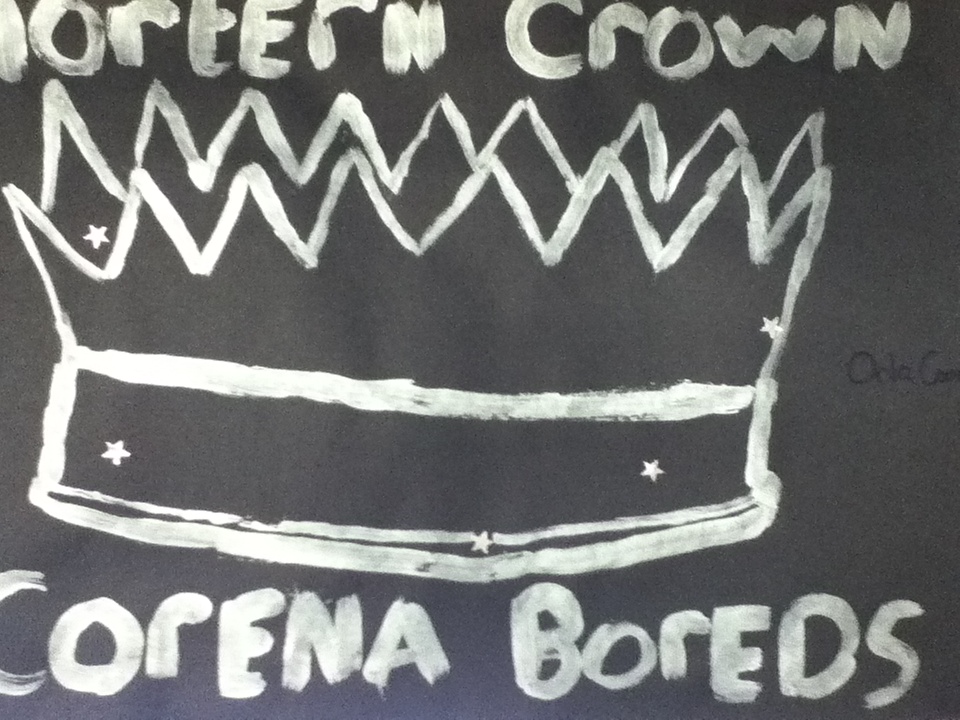 NorTErN Crown
Orla
CorENA BorEDS